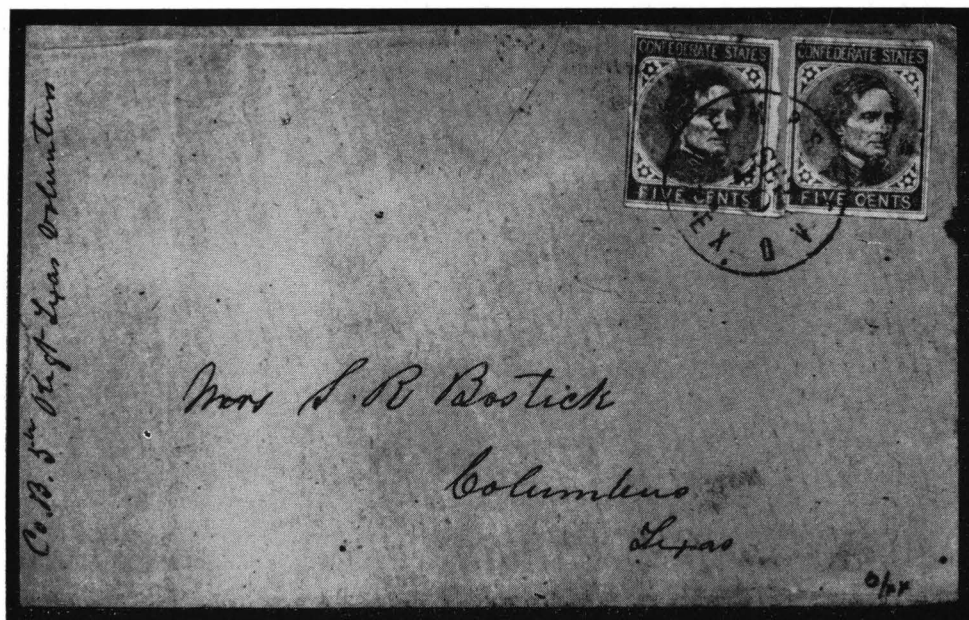 Co. B. 5th Regt Texas Volunturs
CONFEDERATE STATES
FIVE CENTS
CONFEDERATE STATES
FIVE CENTS
Mrs S. R Bostick
Columbus
Texas